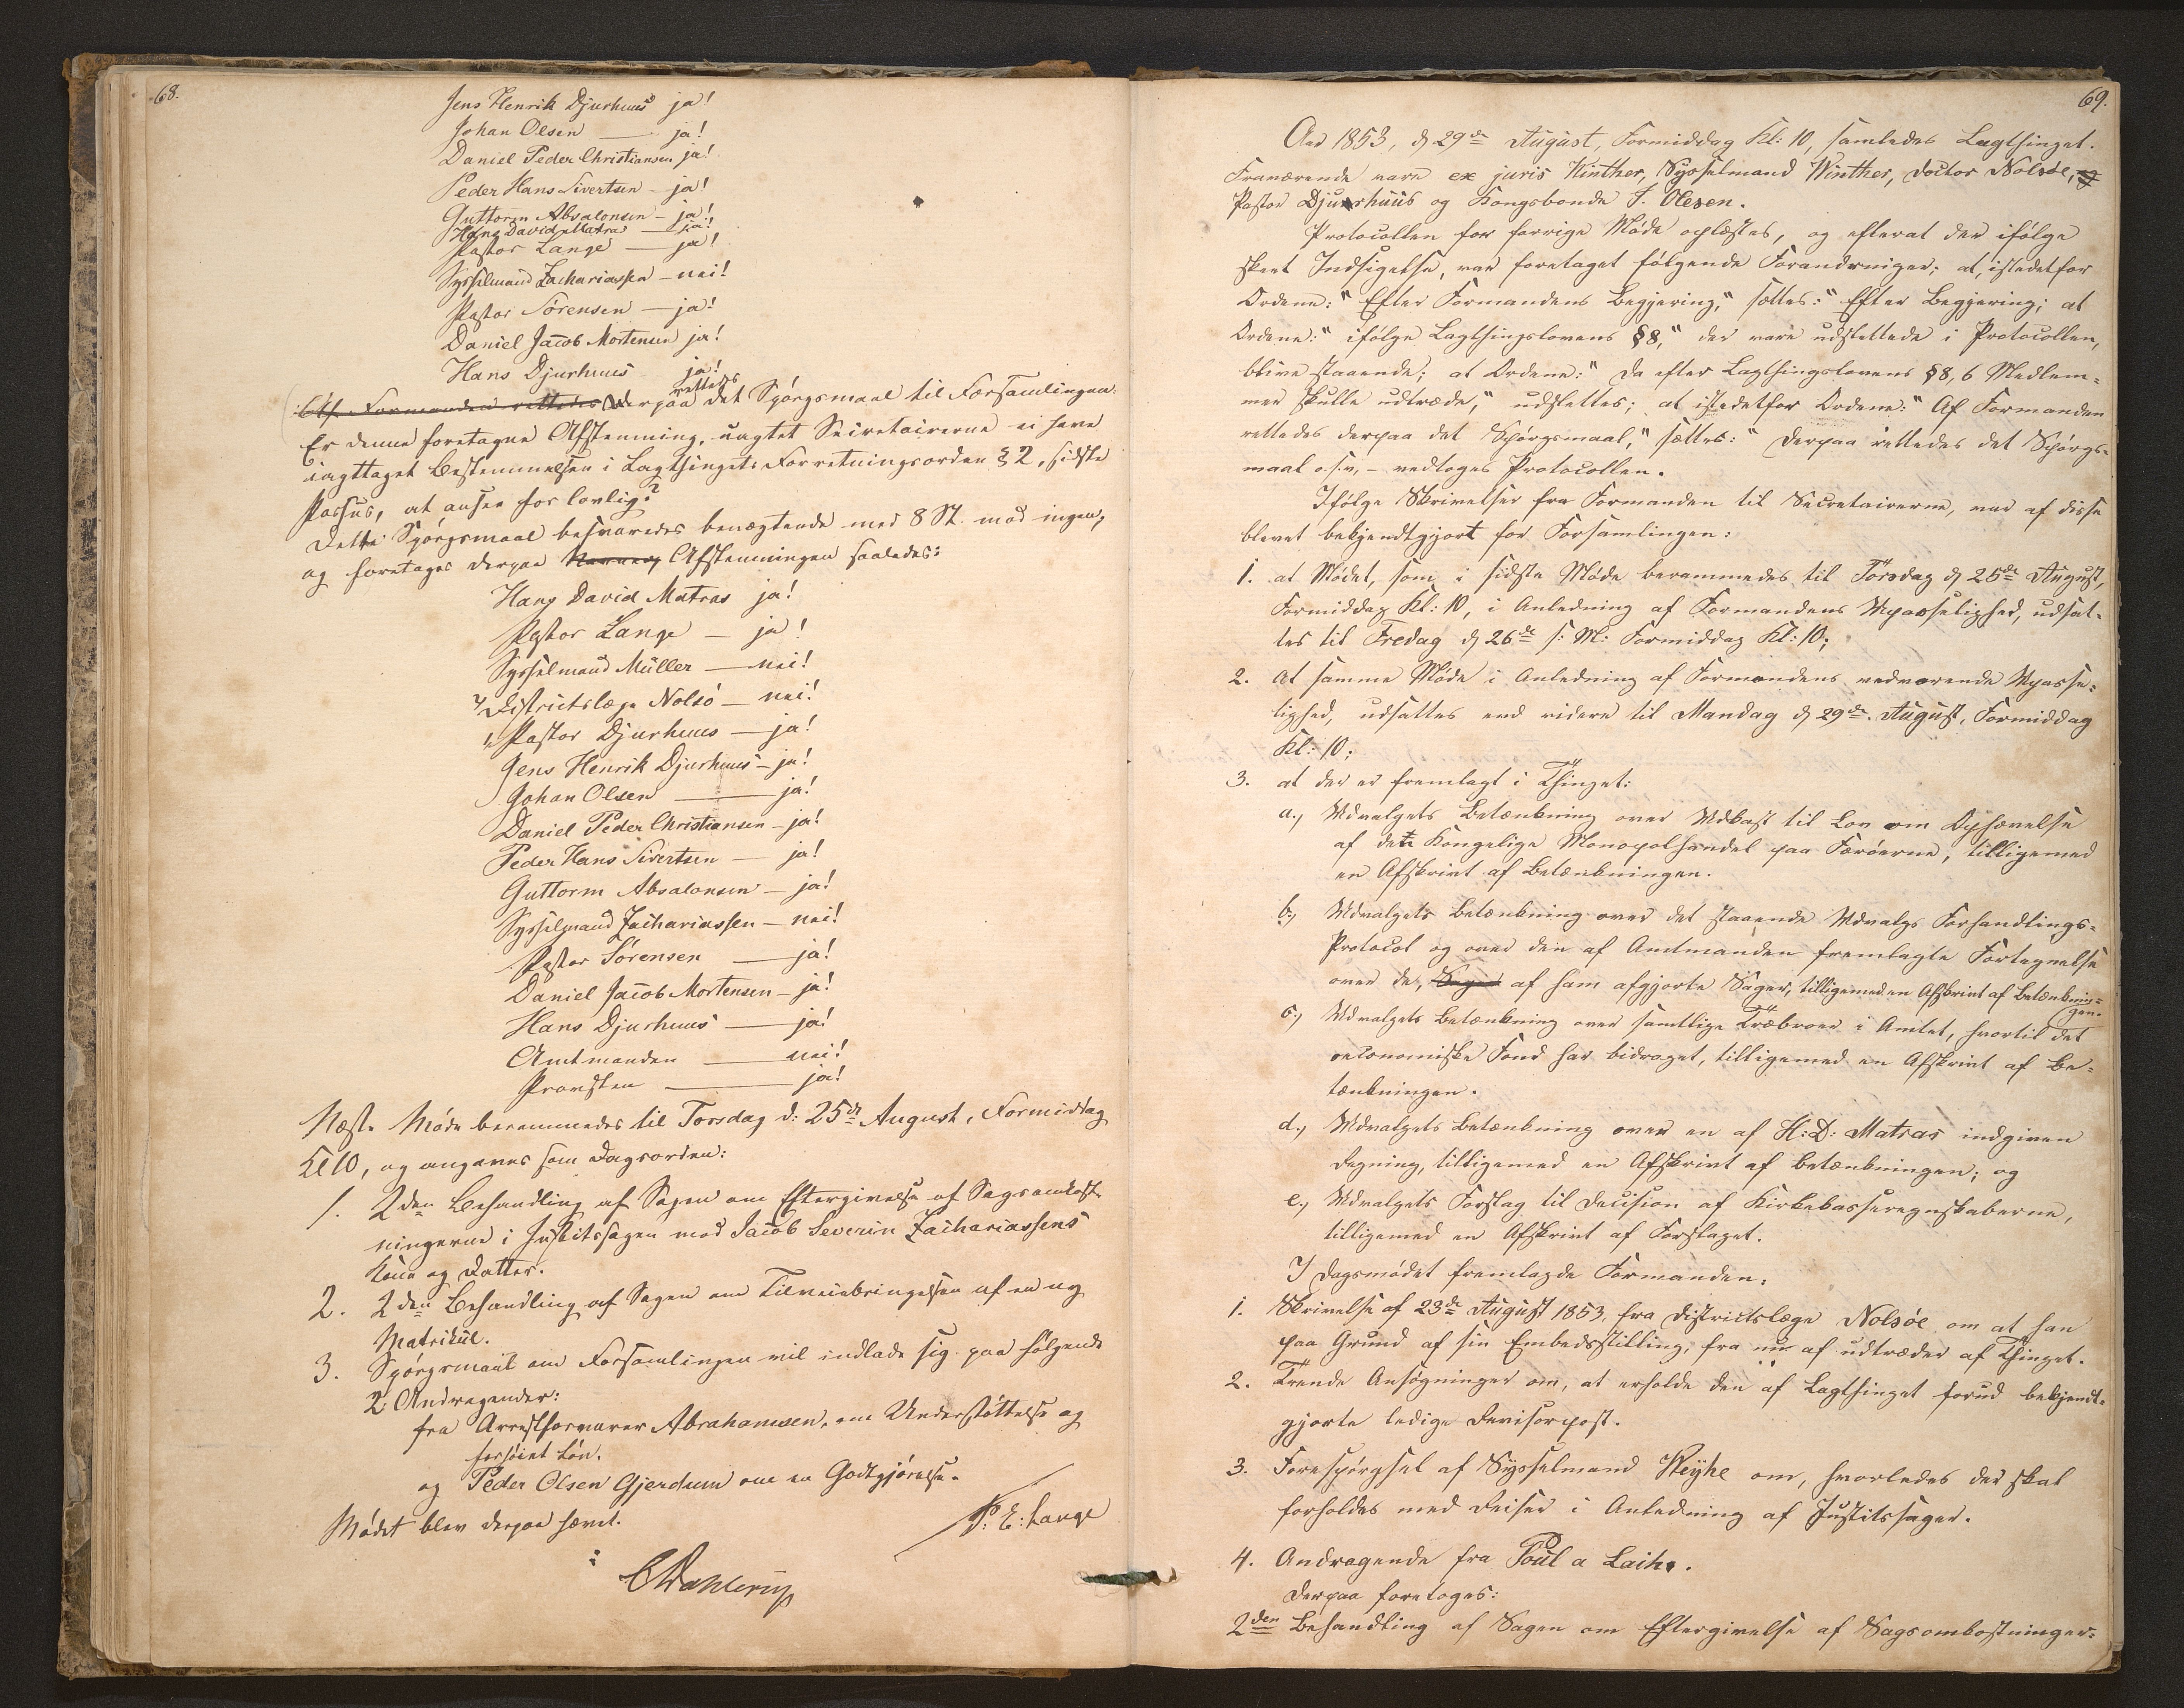 68.
Jens Henrik Djurhuus ja!
Johan Olsen — ja!
Daniel Peder Christiansen ja!
Peder Hans Sivertsen — ja!
Guttorm Absalonsen — ja!
Hans David Matras — ja!
Pastor Lange — ja!
Sysselmand Zachariassen — nei!
Pastor Sørensen — ja!
Daniel Jacob Mortensen ja!
Hans Djurhuus ja!
Af Formanden rettedes Derpaa rettedes det Spørgsmaal til Forsamlingen:
Er denne foretagne Afstemning, uagtet Secretairerne ei have
iagttaget Bestemmelsen i Lagthingets Forretningsorden § 2, sidste
Passus, at ansee for lovlig?
Dette Spørgsmaal besvaredes benægtende med 8 St. mod ingen,
og foretoges derpaa Afstemningen saaledes:
Hans David Matras ja!
Pastor Lange — ja!
Sysselmand Müller — nei!
Districtslæge Nolsö — nei!
Pastor Djurhuus — ja!
Jens Henrik Djurhuus — ja!
Johan Olsen — ja!
Daniel Peder Christiansen — ja!
Peder Hans Sivertsen — ja!
Guttorm Absalonsen — ja!
Sysselmand Zachariassen — nei!
Pastor Sørensen — ja!
Daniel Jacob Mortensen — ja!
Hans Djurhuus — ja!
Amtmanden — nei!
Provsten — ja!
Næste Møde berammedes til Torsdag d: 25de August, Formiddag
Kl 10, og angaves som Dagsorden:
1. 2den Behandling af Sagen om Eftergivelse af Sagsomkost-
ningerne i Justitssagen mod Jacob Severin Zachariassens
Kone og Datter.
2. 2den Behandling af Sagen om Tilveiebringelsen af en ny
Matrikul.
3. Spørgsmaal om Forsamlingen vil indlade sig paa følgende
2 Andragender:
fra Arrestforvarer Abrahamsen, om Understøttelse og
forhøiet Løn.
og Peder Olsen Gjerdum om en Godtgjørelse.
Mødet blev derpaa hævet.
P: E: Lange
CDahlerup
69.
Aar 1853, d 29de August, Formiddag Kl: 10, samledes Lagthinget.
Fraværende vare ex juris Winther, Sysselmand Winther, Doctor Nolsöe,
Pastor Djurrhuus og Kongsbonde J. Olesen.
Protocollen for forrige Møde oplæstes, og efterat der ifølge
skeet Indsigelse, var foretaget følgende Forandringer; at, istedetfor
Ordene: "Efter Formandens Begjæring," sættes: "Efter Begjæring; at
Ordene: "ifølge Lagthingslovens § 8," der vare udslettede i Protocollen,
blive staaende; at Ordene: "Da efter Lagthingslovens § 8, 6 Medlem-
mer skulle udtræde," udslettes; at istedetfor Ordene: "Af Formanden
rettedes derpaa det Spørgsmaal," sættes: "Derpaa rettedes det Spørgs-
maal o.s.v, — vedtoges Protocollen.
Ifølge Skrivelser fra Formanden til Secretairerne, var af disse
blevet bekjendtgjort for Forsamlingen:
1. at Mødet, som i sidste Møde berammedes til Torsdag d 25de August,
Formiddag Kl: 10, i Anledning af Formandens Upasselighed, udsat-
tes til Fredag d 26de s: M: Formiddag Kl: 10;
2. at samme Møde i Anledning af Formandens vedvarende Upasse-
lighed, udsattes end videre til Mandag d 29de August, Formiddag
Kl: 10;
3. at der er fremlagt i Thinget:
a., Udvalgets Betænkning over Udkast til Lov om Ophævelse
af den Kongelige Monopolhandel paa Færöerne, tilligemed
en Afskrivt af Betænkningen.
b., Udvalgets Betænkning over det staaende Udvalgs Forhandlings-
Protocol og over den af Amtmanden fremlagte Fortegnelse
over de, Sager af ham afgjorte Sager, tilligemed en Afskrivt af Betænknin-
gen.
c., Udvalgets Betænkning over samtlige Træbroer i Amtet, hvortil det
oeconomiske Fond har bidraget, tilligemed en Afskrivt af Be-
tænkningen.
d., Udvalgets Betænkning over en af H: D: Matras indgiven
Regning, tilligemed en Afskrivt af Betænkningen; og
e., Udvalgets Forslag til Decision af Kirkekasseregnskaberne,
tilligemed en Afskrivt af Forslaget.
I Dagsmødet fremlagde Formanden:
1. Skrivelse af 23de August 1853, fra Districtslæge Nolsöe om at han
paa Grund af sin Embedsstilling, fra nu af udtræder af Thinget.
2. Trende Ansøgninger om, at erholde den af Lagthinget forud bekjendt-
gjorte ledige Revisorpost.
3. Forespørgsel af Sysselmand Weyhe om, hvorledes der skal
forholdes med Reiser i Anledning af Justitssager.
4. Andragende fra Poul a Laihe.
Derpaa foretoges:
2den Behandling af Sagen om Eftergivelse af Sagsomkostninger-